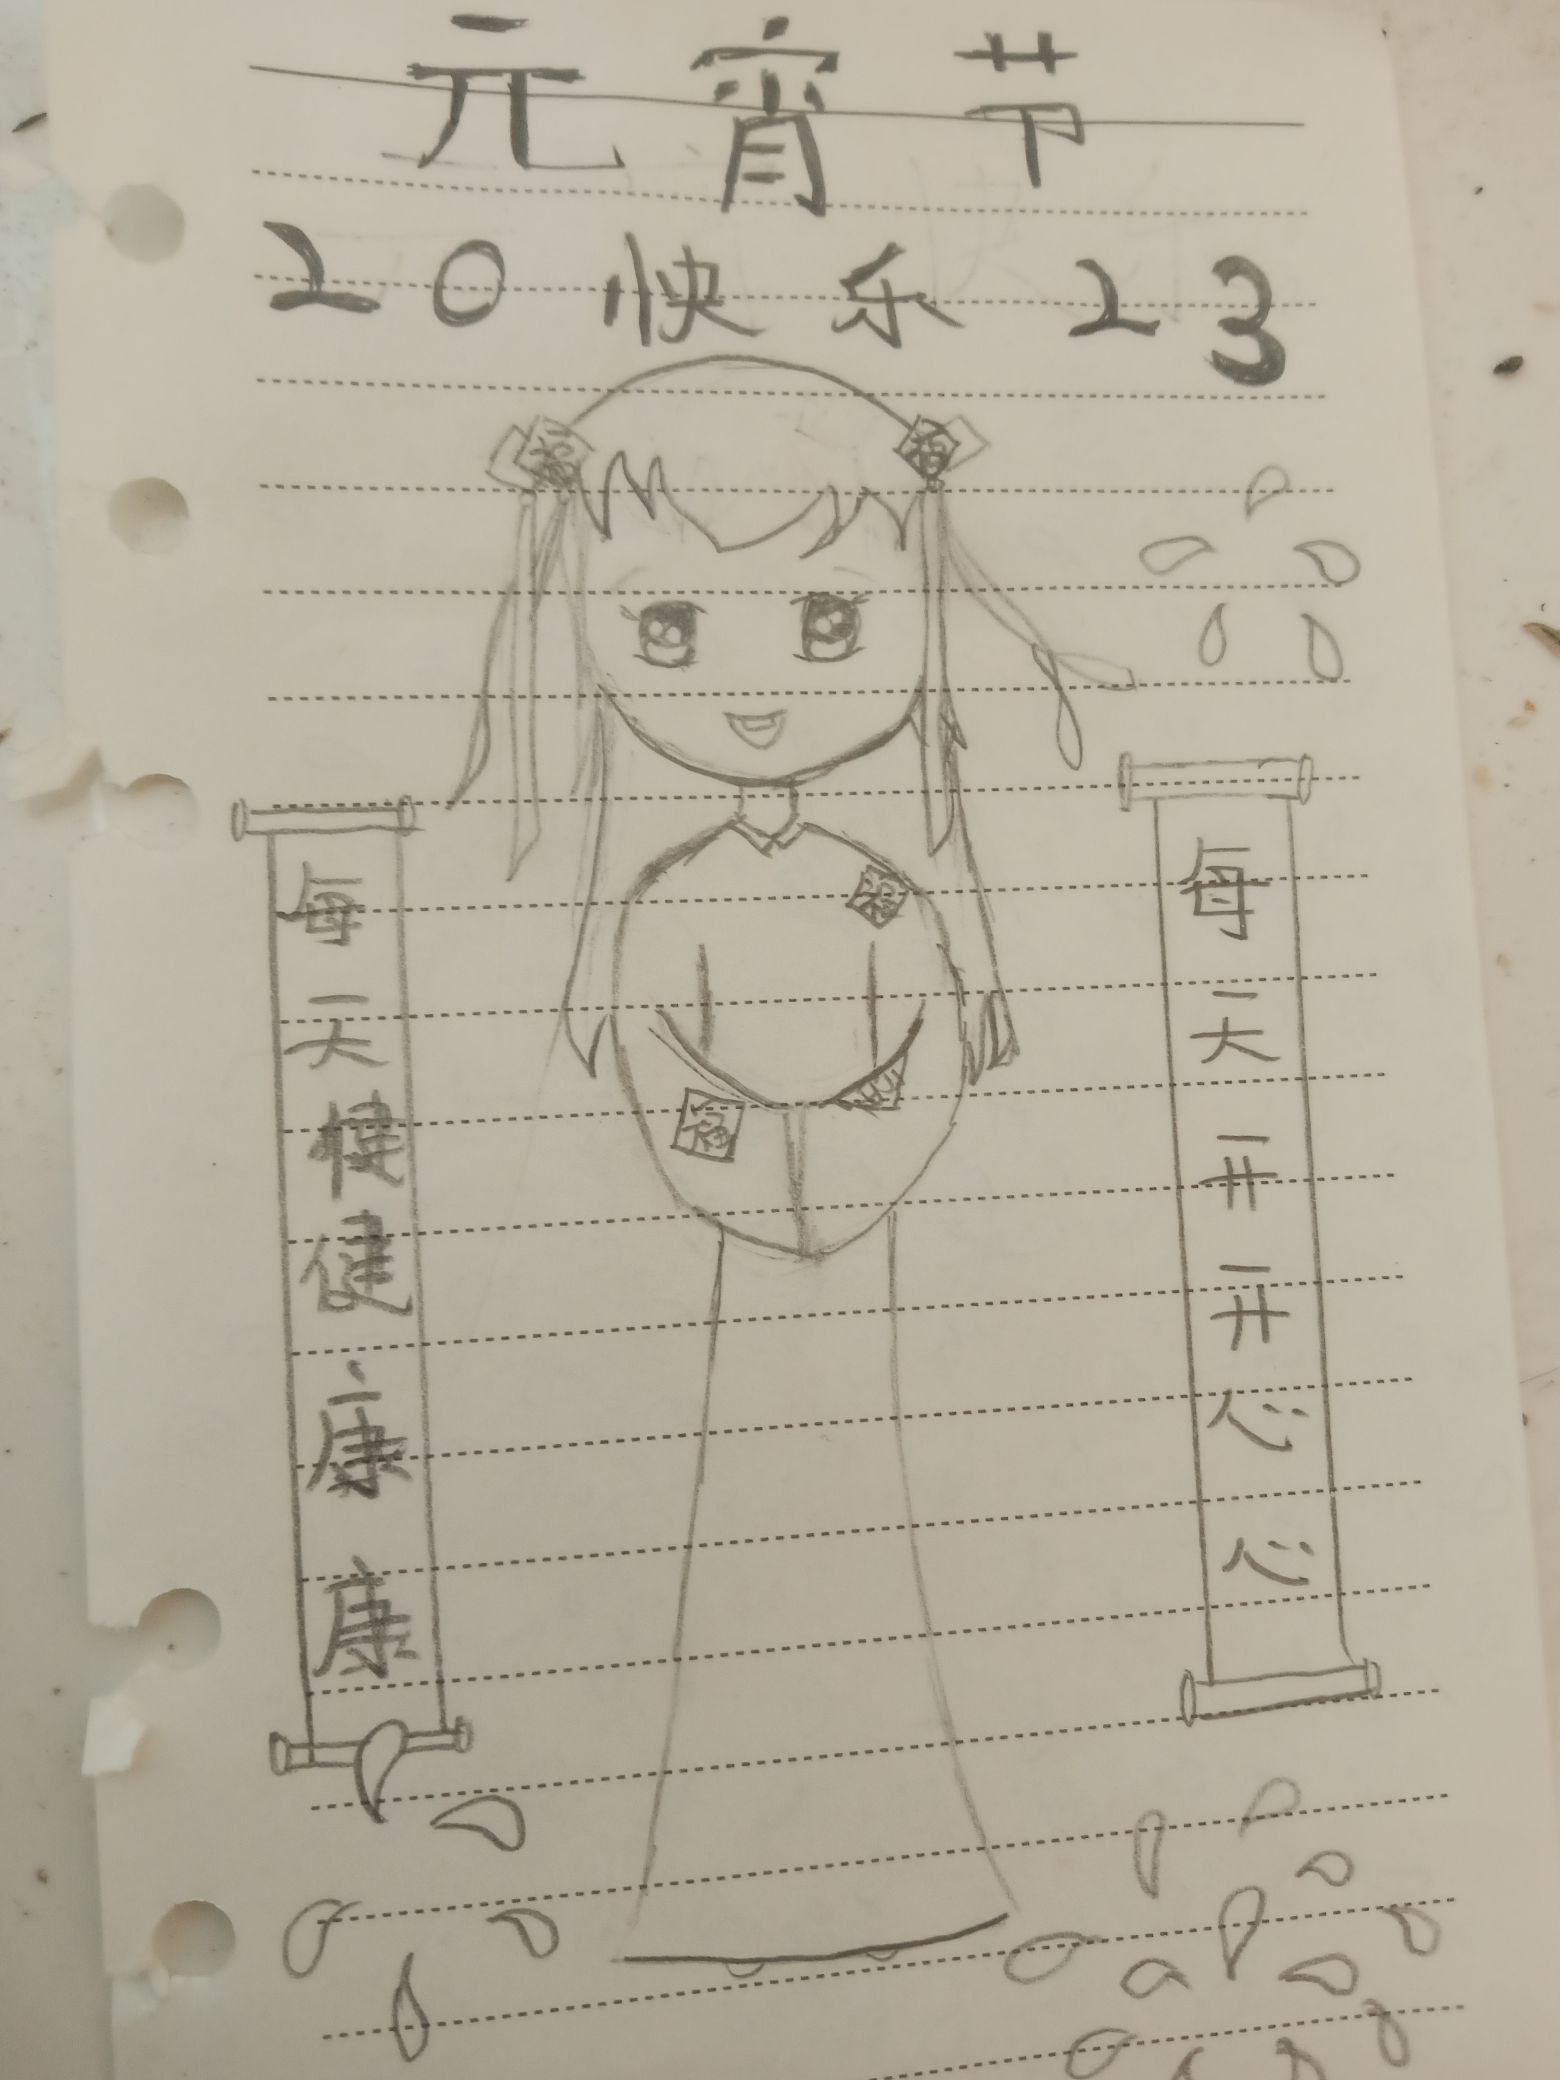 元宵节
20快乐23
福
福
每天健健康康
每天开开心心
福
福